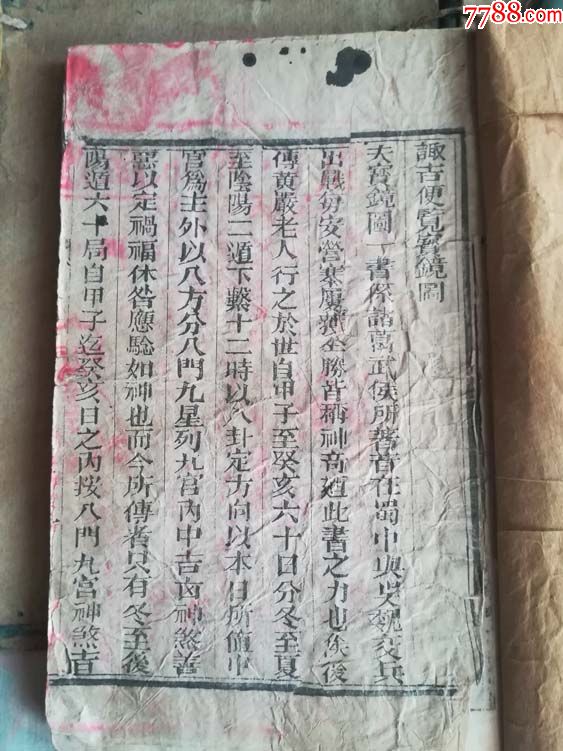 7788.com
諏吉便覽寳鏡圖
夫寳鏡圖一書係諸葛武侯所著昔在蜀中與吳魏交兵
出戰身安營寨屢獲全勝皆稱神奇廼此書之力也後
傳黃嚴老人行之於世自甲子至癸亥六十日分冬至夏
至陰陽二遁下繫十二時以八卦定方向以本日所值中
宮為主外以八方分八門九星列九宮內中吉凶神煞者
以定禍福休咎應騐如神也而今所傳者只有冬至後
陽遁六十局自甲子迄癸亥日之內按八門九宮神煞吉